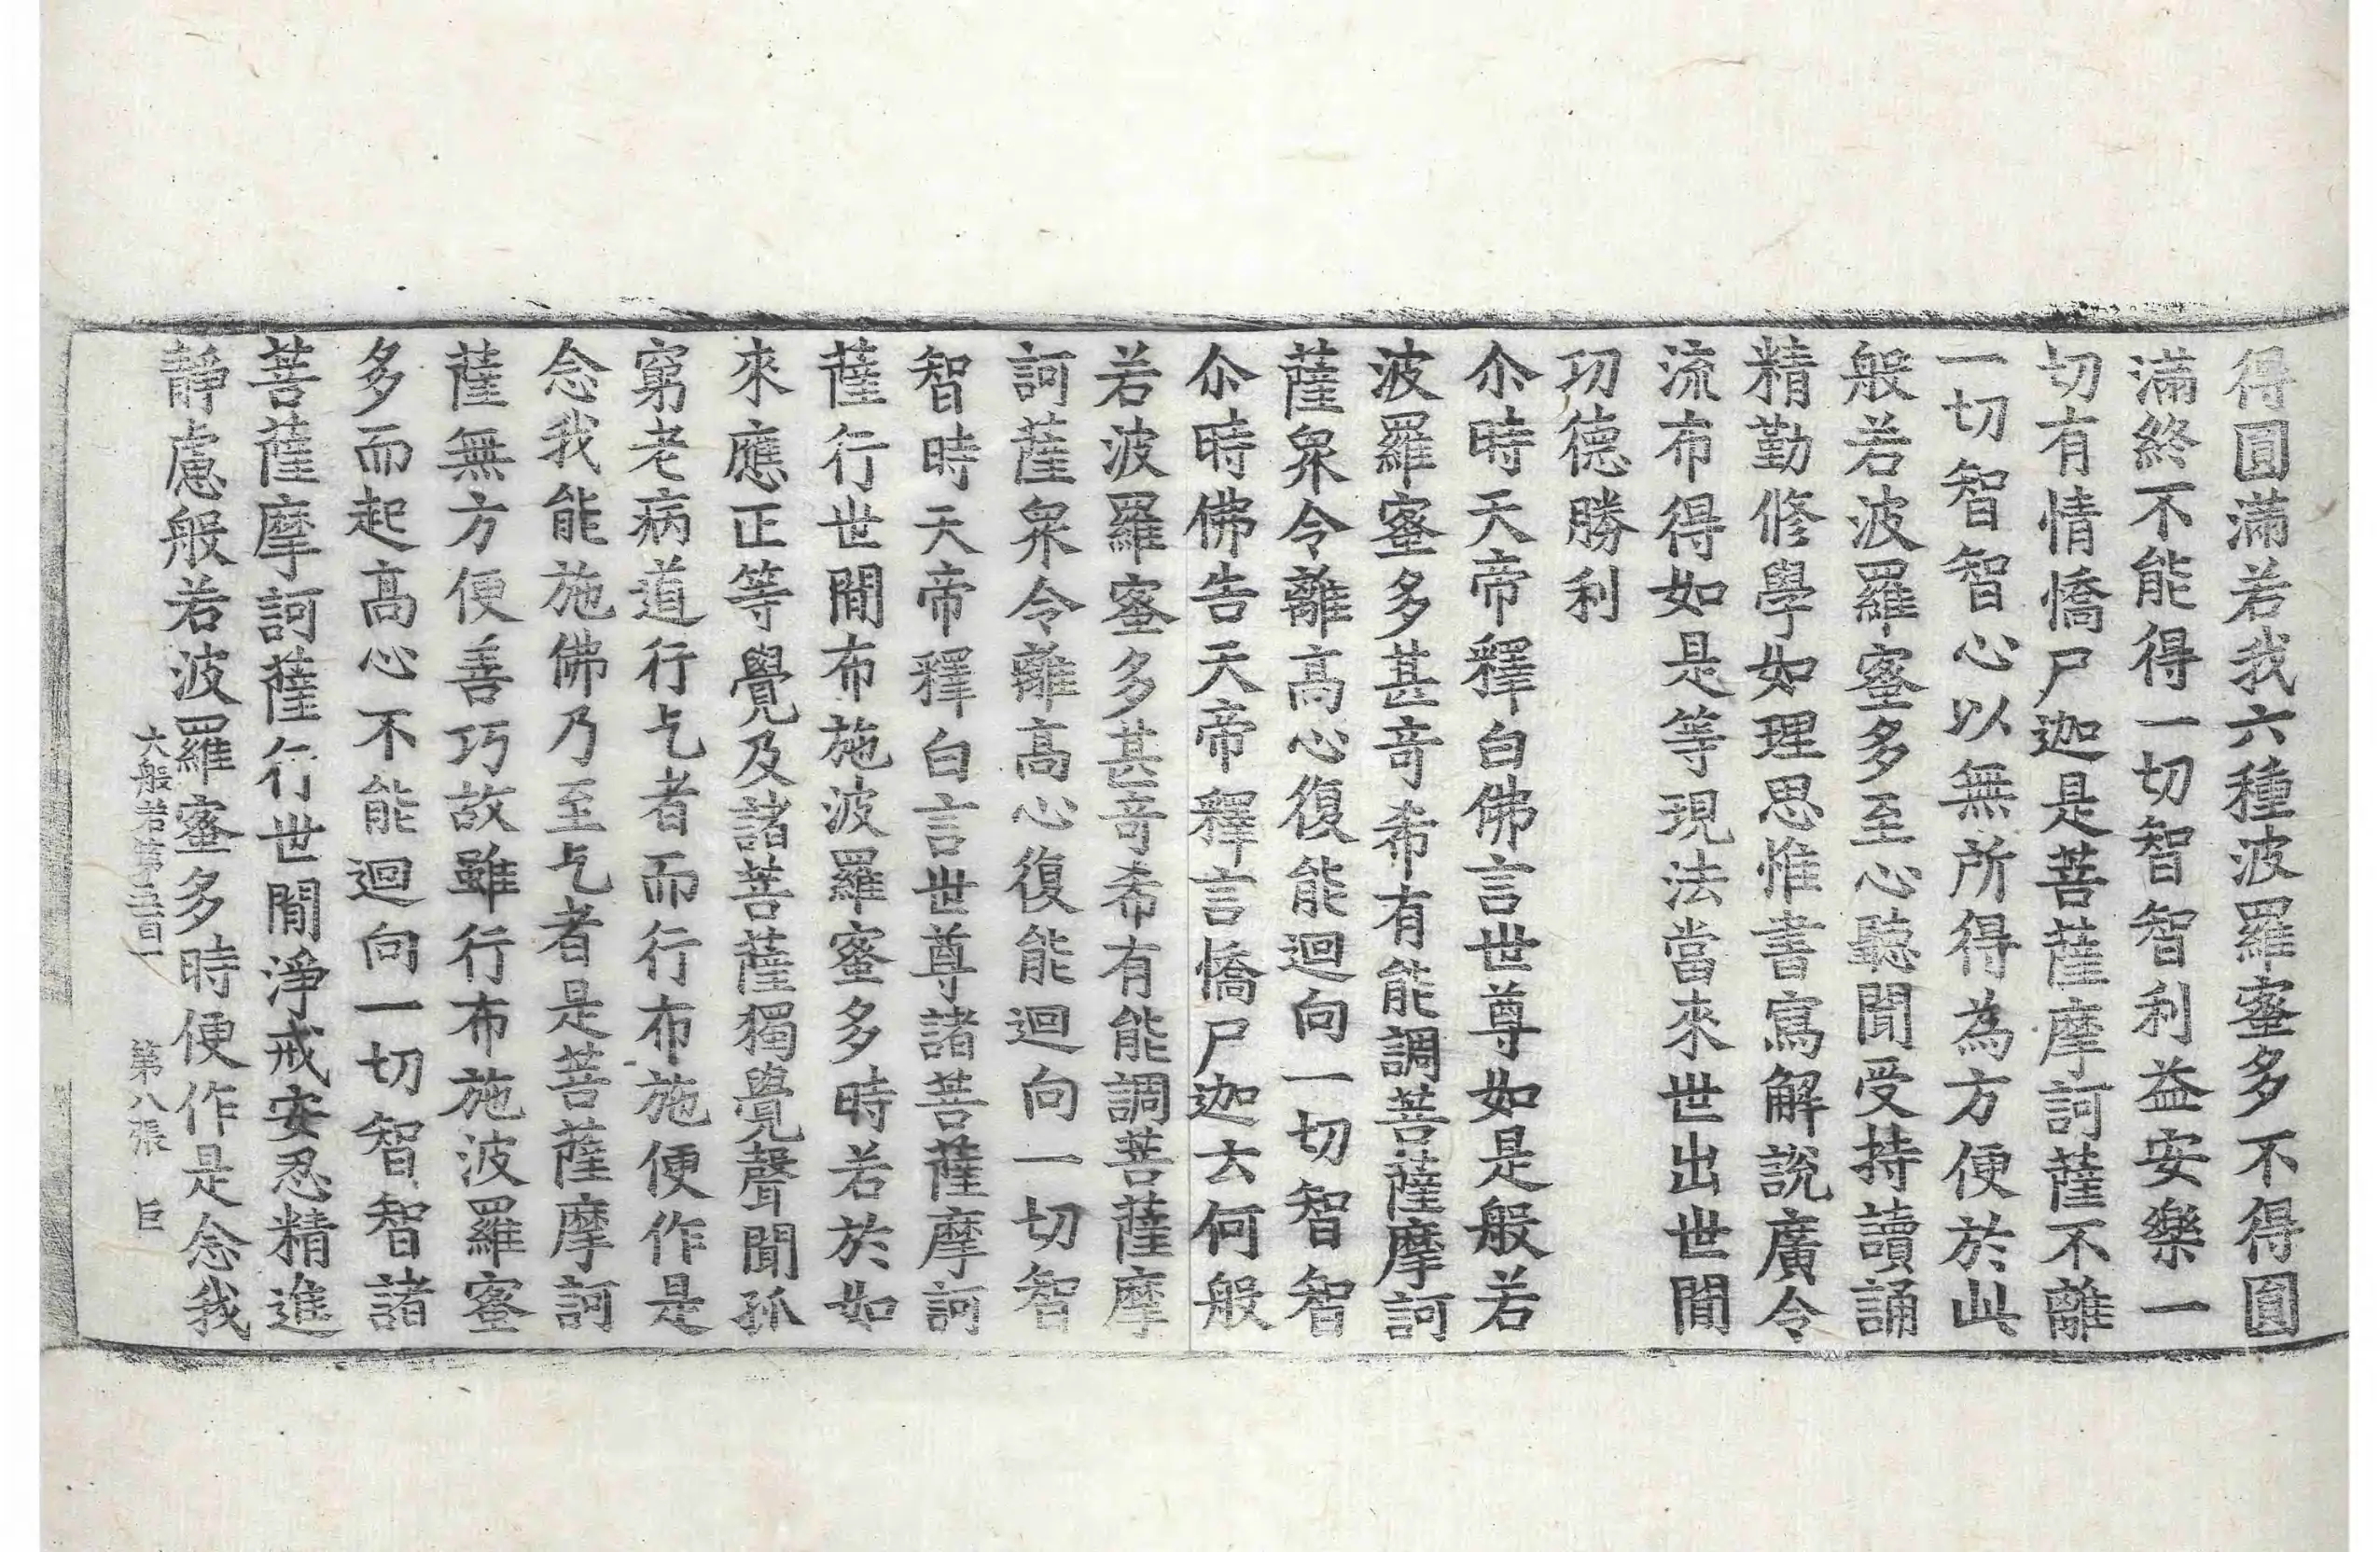 得圓滿若我六種波羅蜜多不得圓
滿終不能得一切智智利益安樂一
切有情憍尸迦是菩薩摩訶薩不離
一切智智心以無所得為方便於此
般若波羅蜜多至心聽聞受持讀誦
精勤修學如理思惟書寫解說廣令
流布得如是等現法當來世出世間
功德勝利
尒時天帝釋白佛言世尊如是般若
波羅蜜多甚奇希有能調菩薩摩訶
薩眾令離高心復能迴向一切智智
尒時佛告天帝釋言憍尸迦云何般
若波羅蜜多甚奇希有能調菩薩摩
訶薩眾令離高心復能迴向一切智
智時天帝釋白言世尊諸菩薩摩訶
薩行世間布施波羅蜜多時若於如
來應正等覺及諸菩薩獨覺聲聞孤
窮老病道行乞者而行布施便作是
念我能施佛乃至乞者是菩薩摩訶
薩無方便善巧故雖行布施波羅蜜
多而起高心不能迴向一切智智諸
菩薩摩訶薩行世間淨戒安忍精進
靜慮般若波羅蜜多時便作是念我
大般若第五百一 第八張 臣